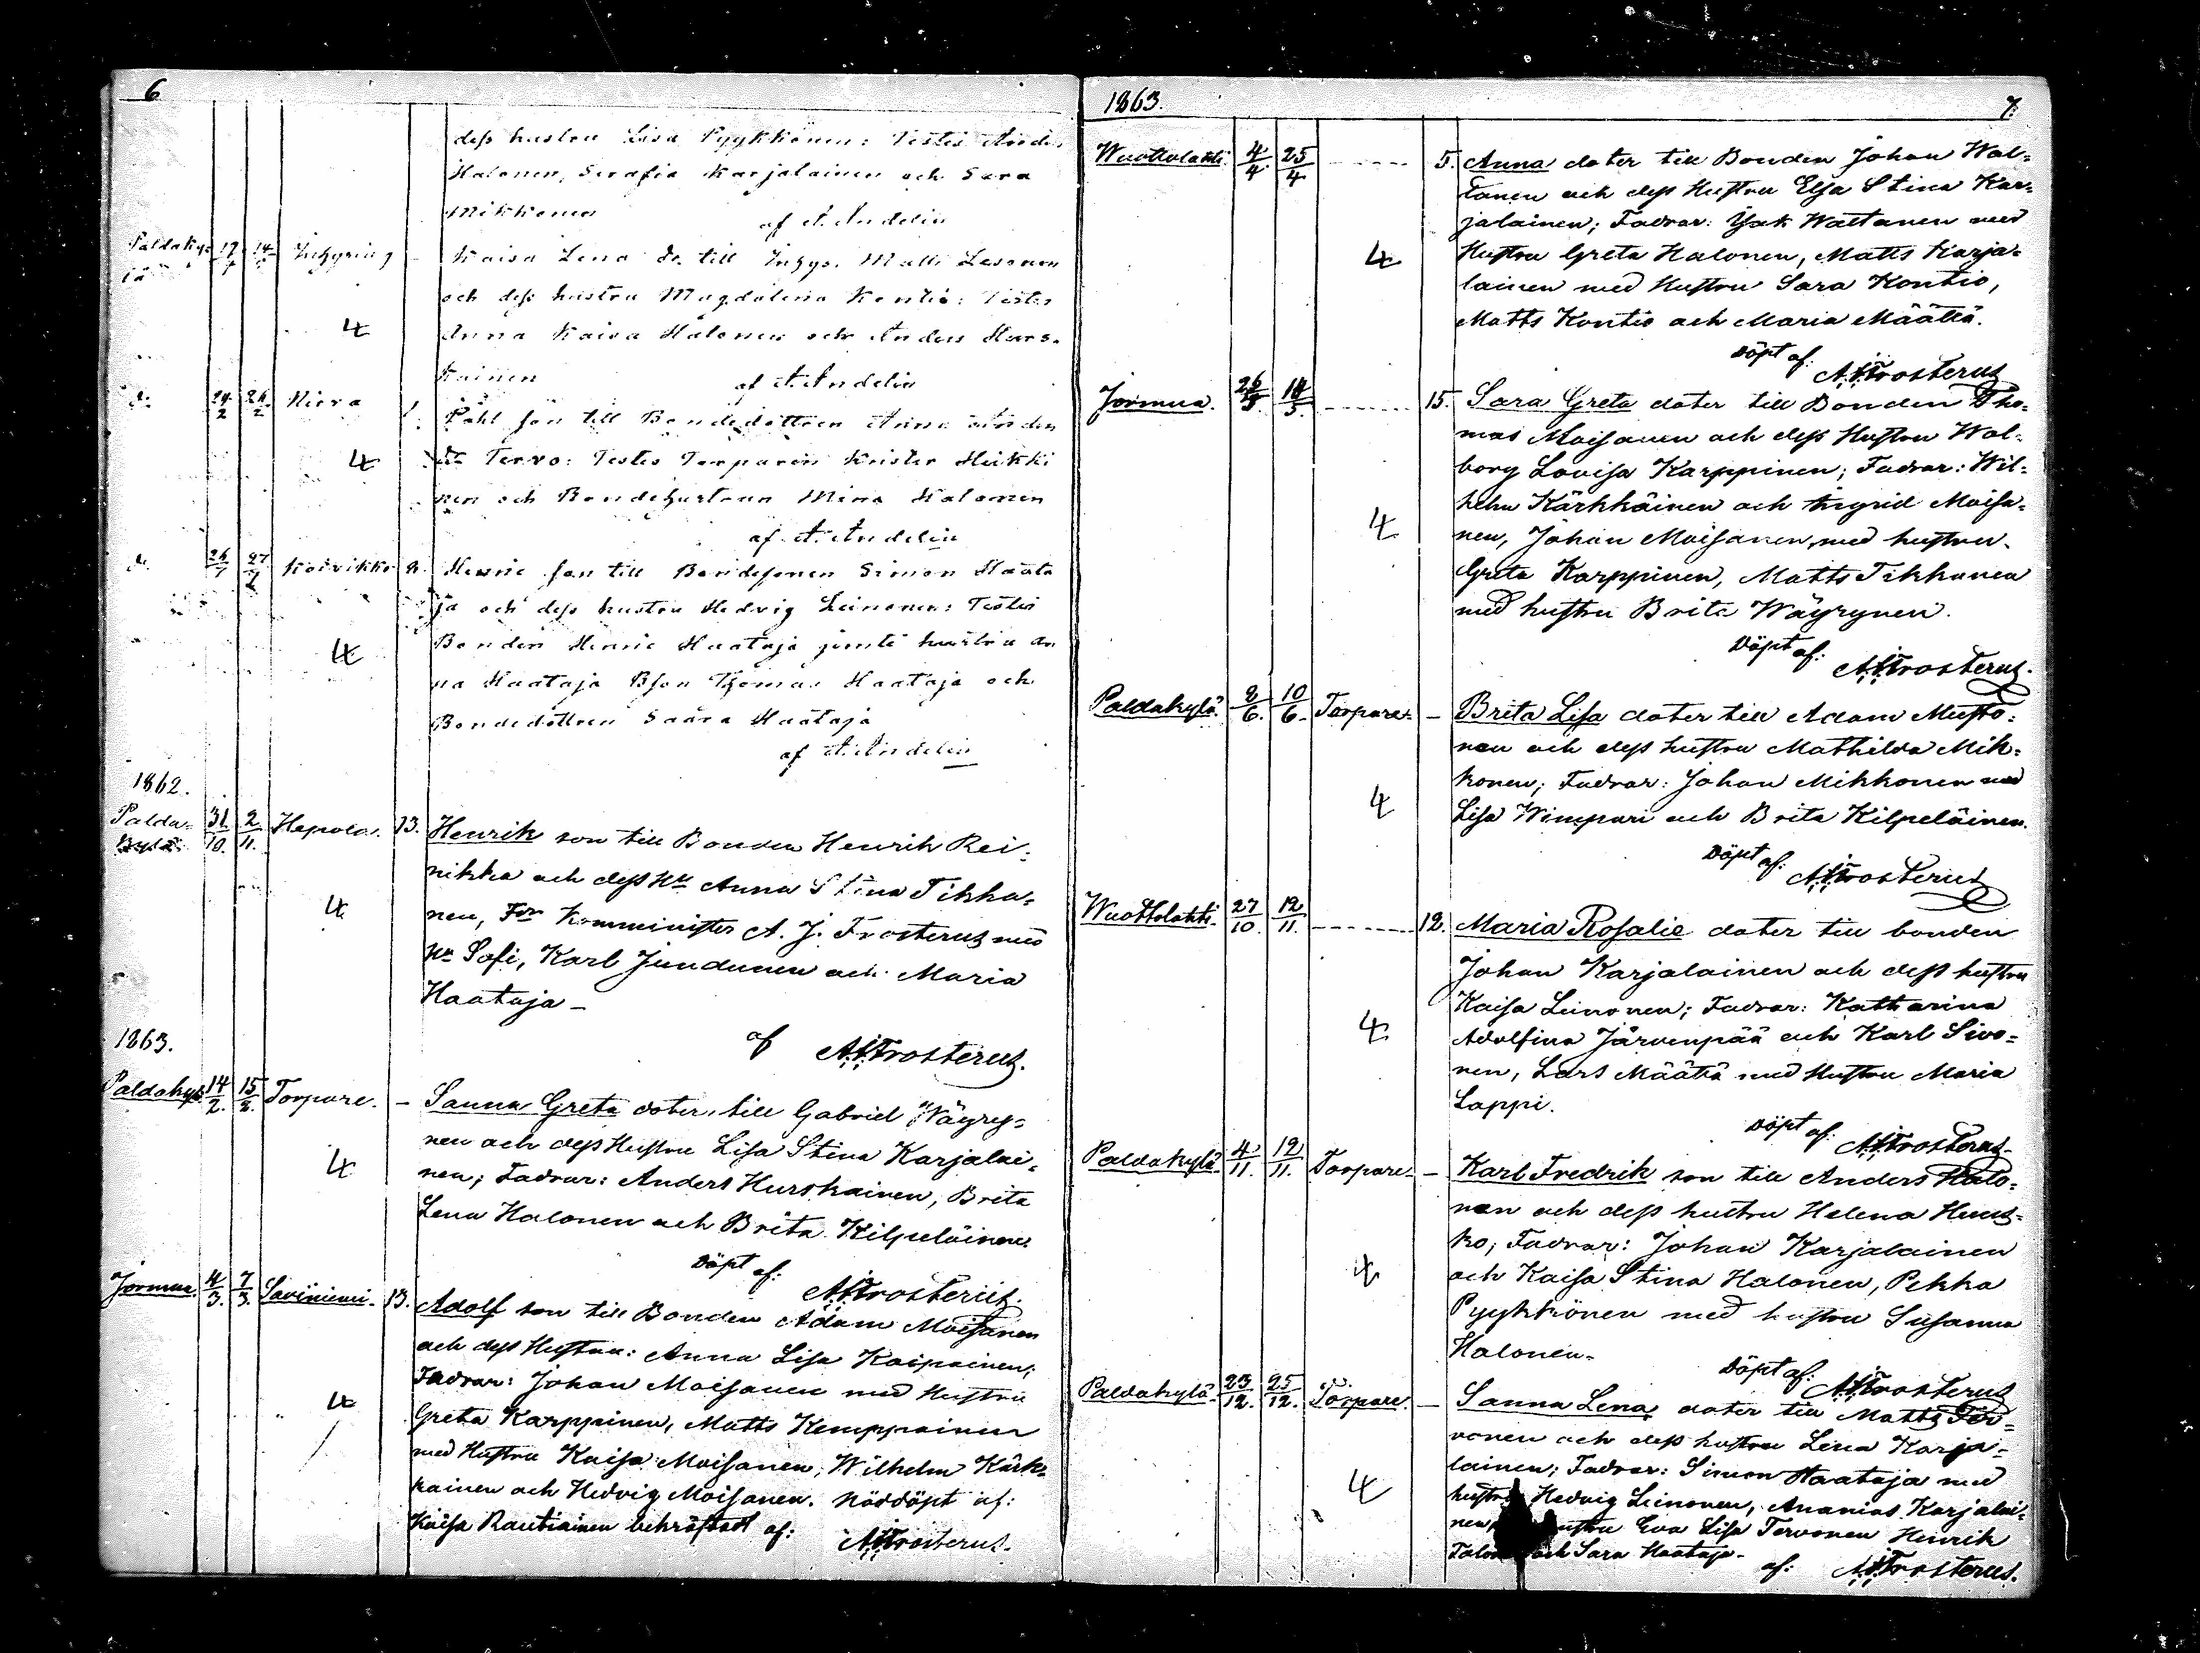 6
dess hustru Lisa Pyykkönen: Testes Anders
Halonen, Serafia Karjalainen och Sara
Mikkonen
af A. Andelin
Paldaky-lä 17 14 Inhysing
Kaisa Lena dr. till Inhys. Matti Lesonen
och dess hustru Magdalena Kontio: Testes
4
Anna Kaisa Halonen och Anders Hurs-
kainen
af A. Andelin
d:o 24/2 26/2 Niera
Påhl son till Bondedottren Anna
4
Tervo: Testes Torparen Krister Heikki
nen och Bondehustrun Mina Halonen
af A. Andelin
d:o 26 27 Koivikko
Henric son till Bondesonen Simon Haata
ja och dess hustru Hedvig Leinonen: Testes
4
Bonden Henric Haataja jemte hustru An
na Haataja Bson Thomas Haataja och
Bondedottren Saara Haataja
af A. Andelin
1862.
Palda-kylä 31/10. 2/11. Hepola. 13. Henrik son till Bonden Henrik Rei-
nikka och dess Hu Anna Stina Tikka-
4
nen, Fdr Komminister A. J. Frosterus med
Hu Sofi, Karl Jundunen och Maria
Haataja –
af AJFrosterus.
1863.
Paldakylä 14/2. 15/2. Torpare. – Sanna Greta doter till Gabriel Wäyry-
nen och dess Hustru Lisa Stina Karjalai-
4
nen; Fadrar: Anders Hurskainen, Brita
Lena Halonen och Brita Kilpeläinen.
Döpt af: AJFrosterus.
Jormua. 4/3. 7/3. Saviniemi. 13. Adolf son till Bonden Adam Moisanen
och dess Hustru: Anna Lisa Kaipainen;
Fadrar: Johan Moisanen med Hustru
4
Greta Karppinen, Matts Kemppainen
med Hustru Kaisa Moisanen, Wilhelm Kärk-
kainen och Hedvig Moisanen. Nöddöpt af:
Kaisa Rautiainen bekräftadt af: AJFrosterus.
1863. 7.
Wuottolahti. 4/4 25/4 5. Anna doter till Bonden Johan Wat-
tanen och dess Hustru Elsa Stina Kar-
jalainen; Fadrar: Isak Wattanen med
4
Hustru Greta Halonen, Matts Karja-
lainen med Hustru Sara Kontio,
Matts Kontio och Maria Määttä.
Döpt af: AJFrosterus
Jormua. 15. Sara Greta doter till Bonden Tho-
mas Moisanen och dess Hustru Wal-
borg Lovisa Karppinen; Fadrar: Wil-
helm Kärkkäinen och Ingrid Moisa-
4
nen, Johan Moisanen, med hustru
Greta Karppinen, Matts Tikkanen
med hustru Brita Wäyrynen.
Döpt af: AJFrosterus.
Paldakylä. 8/6. 10/6. Torpare. – Brita Lisa doter till Adam Musto-
nen och dess hustru Mathilda Mik-
konen; Fadrar: Johan Mikkonen med
4
Lisa Wimpari och Brita Kilpeläinen.
Döpt af: AJFrosterus
Wuottolahti. 27/10. 12/11. 12. Maria Rosalie doter till bonden
Johan Karjalainen och dess hustru
Kaisa Leinonen; Fadrar: Katharina
4
Adolfina Järvenpää och Karl Sivo-
nen, Lars Määttä med Hustru Maria
Lappi.
Döpt af: AJFrosterus.
Paldakylä. 4/11. 12/11. Torpare. – Karl Fredrik son till Anders Halo-
nen och dess hustru Helena Hurs-
ko; Fadrar: Johan Karjalainen
4
och Kaisa Stina Halonen, Pekka
Pyykkönen med hustru Susanna
Halonen.
Döpt af: AJFrosterus
Paldakylä. 23/12. 25/12. Torpare. – Sanna Lena doter till Matts Ter-
vonen och dess hustru Lena Karja-
lainen; Fadrar: Simon Haataja med
4
hustru Hedvig Leinonen, Ananias Karjalai-
nen, hustru Eva Lisa Tervonen Henrik
och Sara Haataja.
af: AJFrosterus.